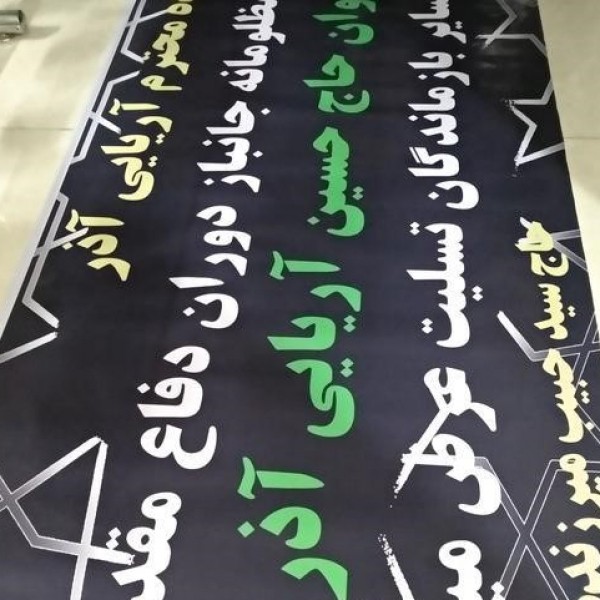 محترم آریایی آذر
مظلومانه جانباز دوران دفاع
حاج حسین آریایی آذر
سایر بازماندگان تسلیت عرض
حاج سید حبیب